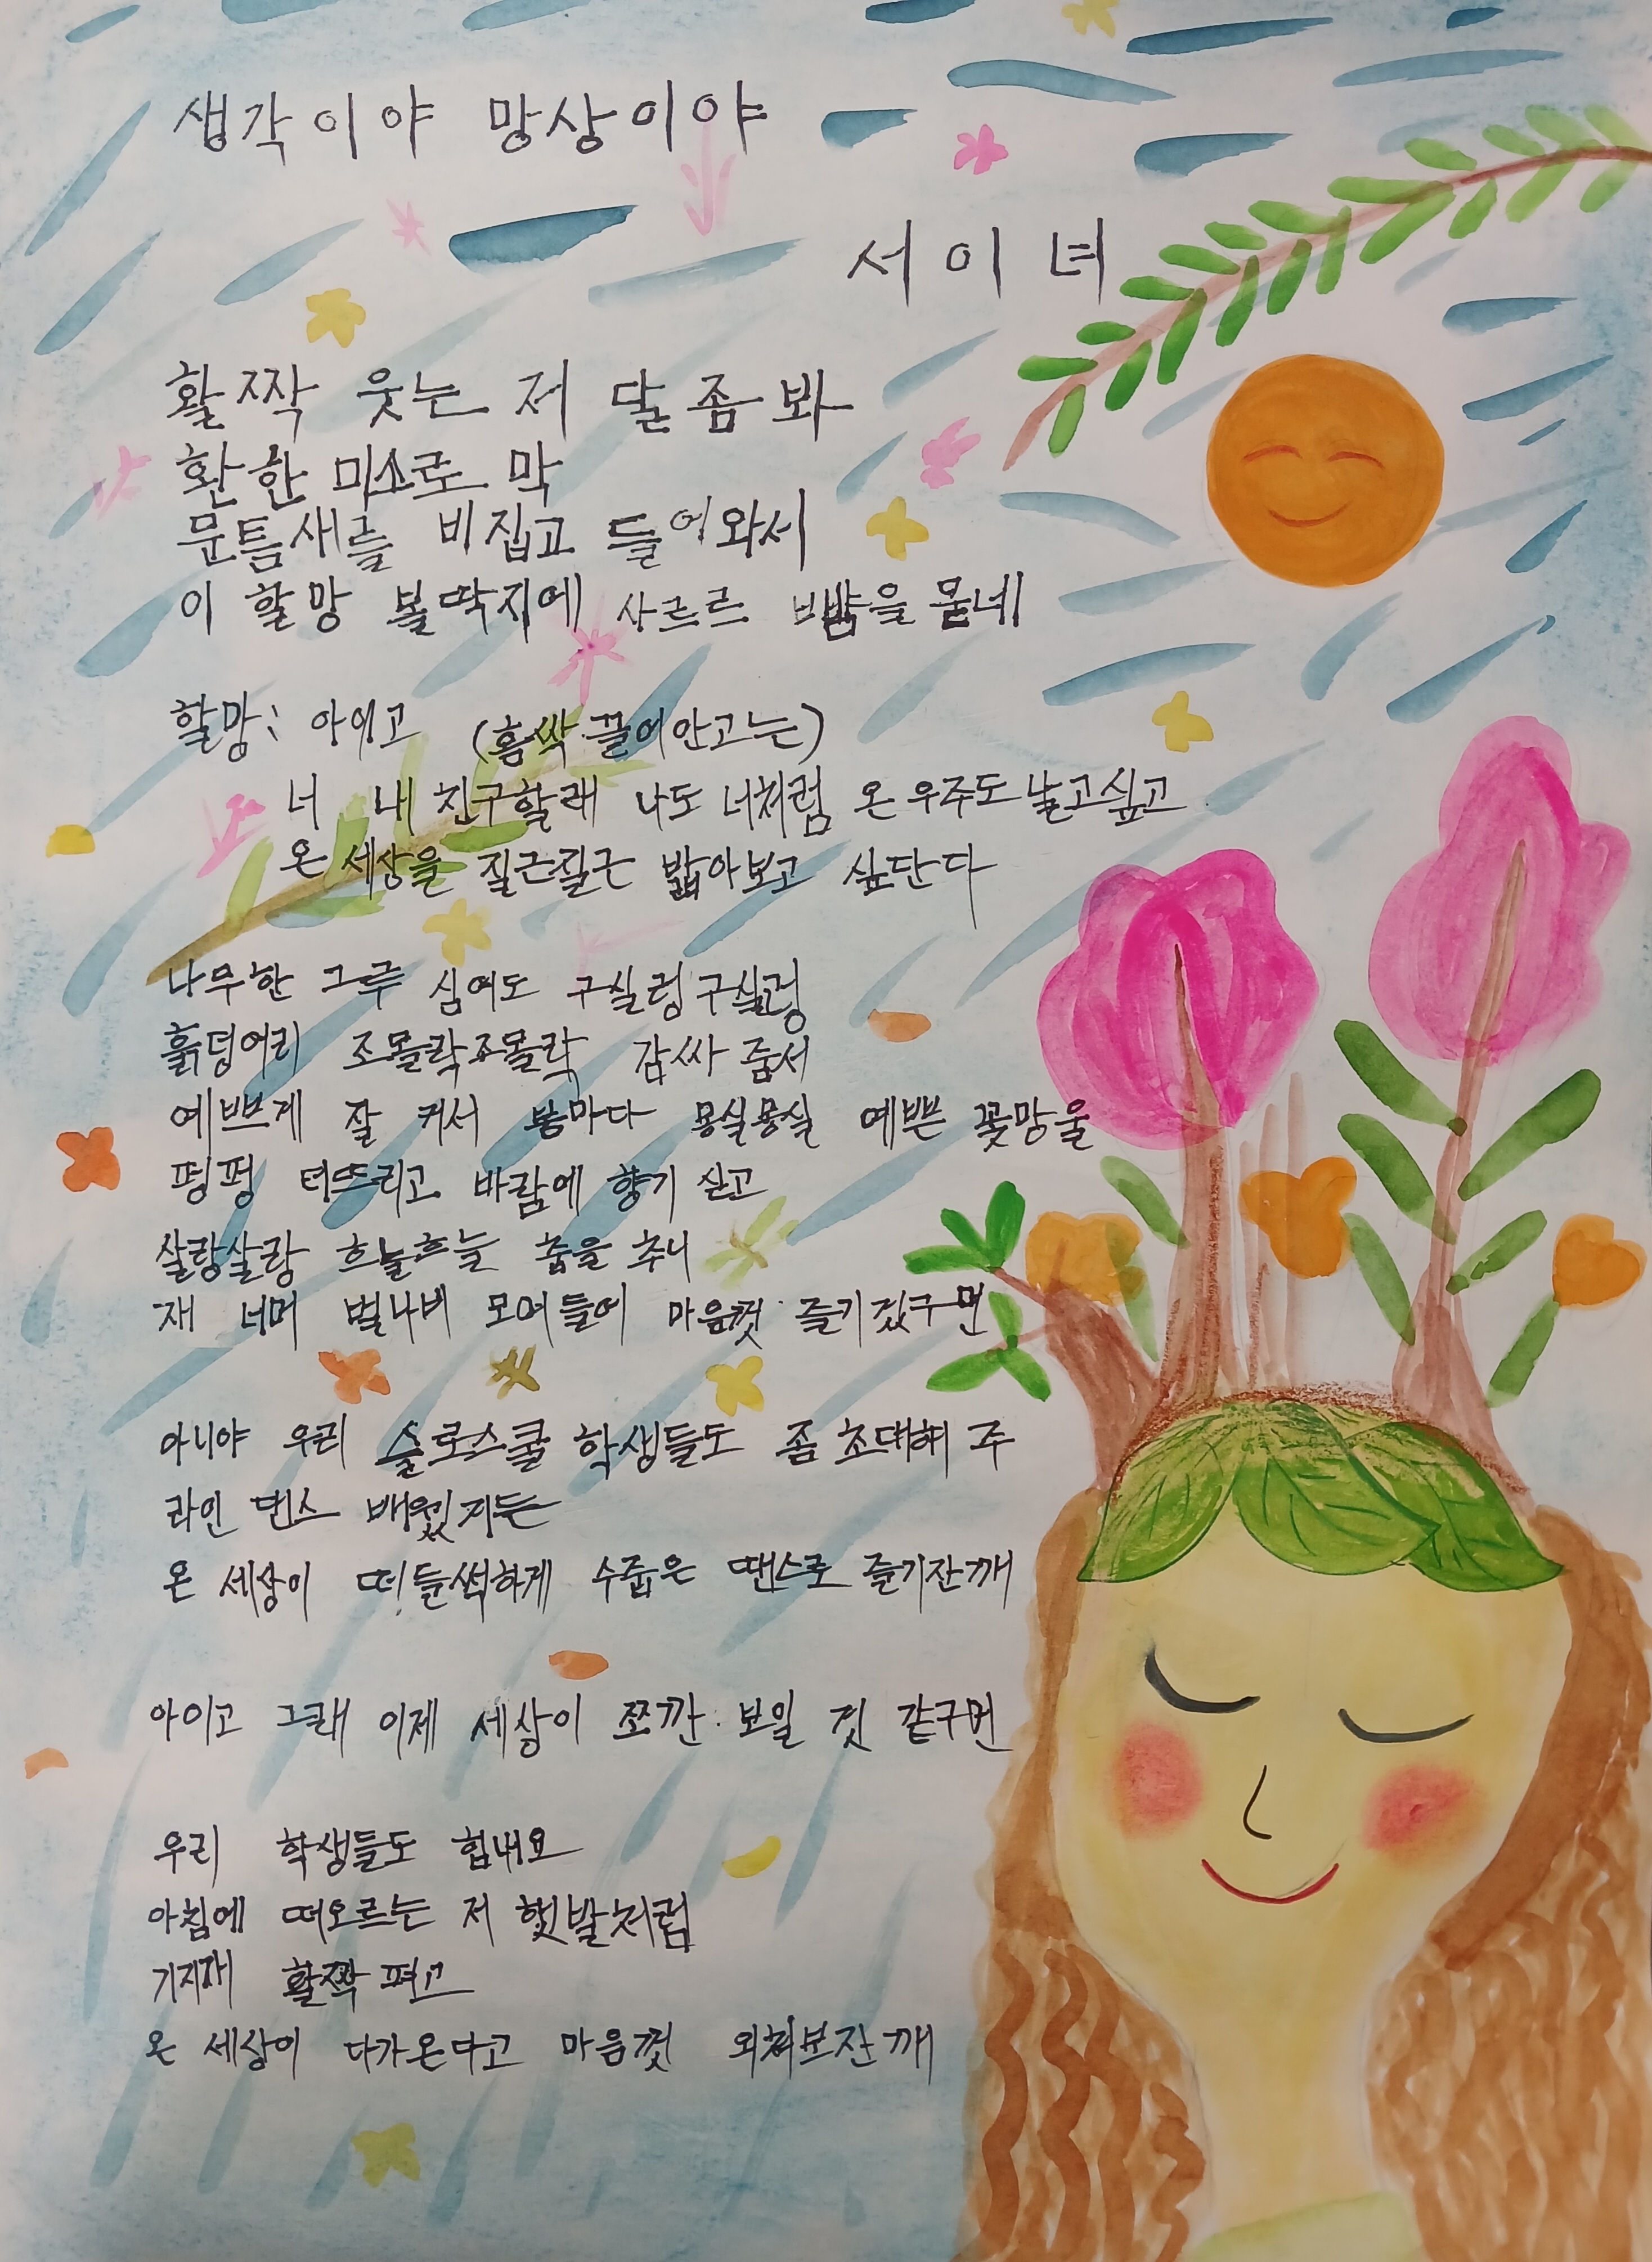 생각이야 망상이야
서이녀
활짝 웃는 저 달좀봐
환한 미소로 막
문틈새를 비집고 들어와서
이 할망 볼딱지에 사르르 뺨을 묻네
할망: 아이고 (흠싹 끌어안고는)
너 내 친구할래 나도 너처럼 온 우주도 날고싶고
온 세상을 질근질근 밟아보고 싶단다
나무한 그루 심어도 구실렁구실렁
흙덩어리 조몰락조몰락 감싸 줌서
예쁘게 잘 커서 봄마다 몽실몽실 예쁜 꽃망울
펑펑 터뜨리고 바람에 향기 싣고
살랑살랑 흐늘흐늘 춤을 추니
재 너머 벌나비 모여들어 마음껏 즐기겄구먼
아니야 우리 슬로스쿨 학생들도 좀 초대해 주
라인 댄스 배웠지든
온 세상이 떠들썩하게 수줍은 땐스로 즐기잔깨
아이고 그래 이제 세상이 쪼깐 보일 것 같구먼
우리 학생들도 힘내요
아침에 떠오르는 저 햇발처럼
기지개 활짝 펴고
온 세상이 다가온다고 마음껏 외쳐보잔깨